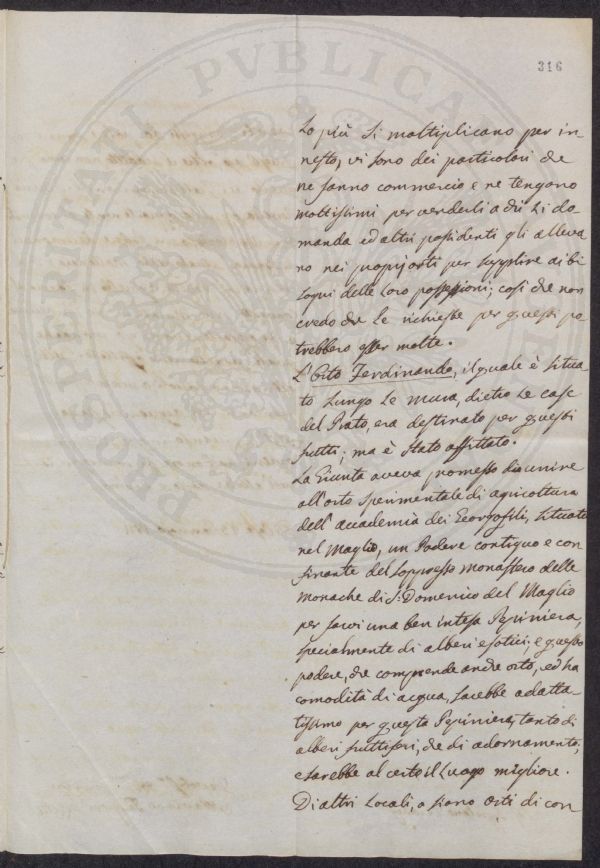 316
PROSPERITATI PVBLICAE
lo più si moltiplicano per in-
nesto, vi sono dei particolari che
ne fanno commercio e ne tengono
moltissimi per venderli a chi li do-
manda ed altri possidenti gli alleva
no nei propij orti per supplire ai bi
sogni delle loro possessioni; così che non
credo che le richieste per questi po
trebbero esser molte.
L'Orto Ferdinando, il quale è situa-
to lungo le mura, dietro le case
del Prato, era destinato per questi
frutti; ma è stato affittato.
La Giunta aveva promesso di riunire
all'orto sperimentale di agricoltura
dell'accademia dei Georgofili, situato
nel Maglio, un Podere contiguo e con
finante del soppresso monastero delle
Monache di S: Domenico del Maglio
per farvi una ben intesa Pepiniera,
specialmente di alberi esotici; e questo
podere, che comprende anche orto, ed ha
comodità di acqua, sarebbe adatta-
tissimo per questa Pepiniera, tanto di
alberi fruttiferi, che di adornamento,
e sarebbe al certo il luogo migliore.
Di altri locali, o siano orti di con